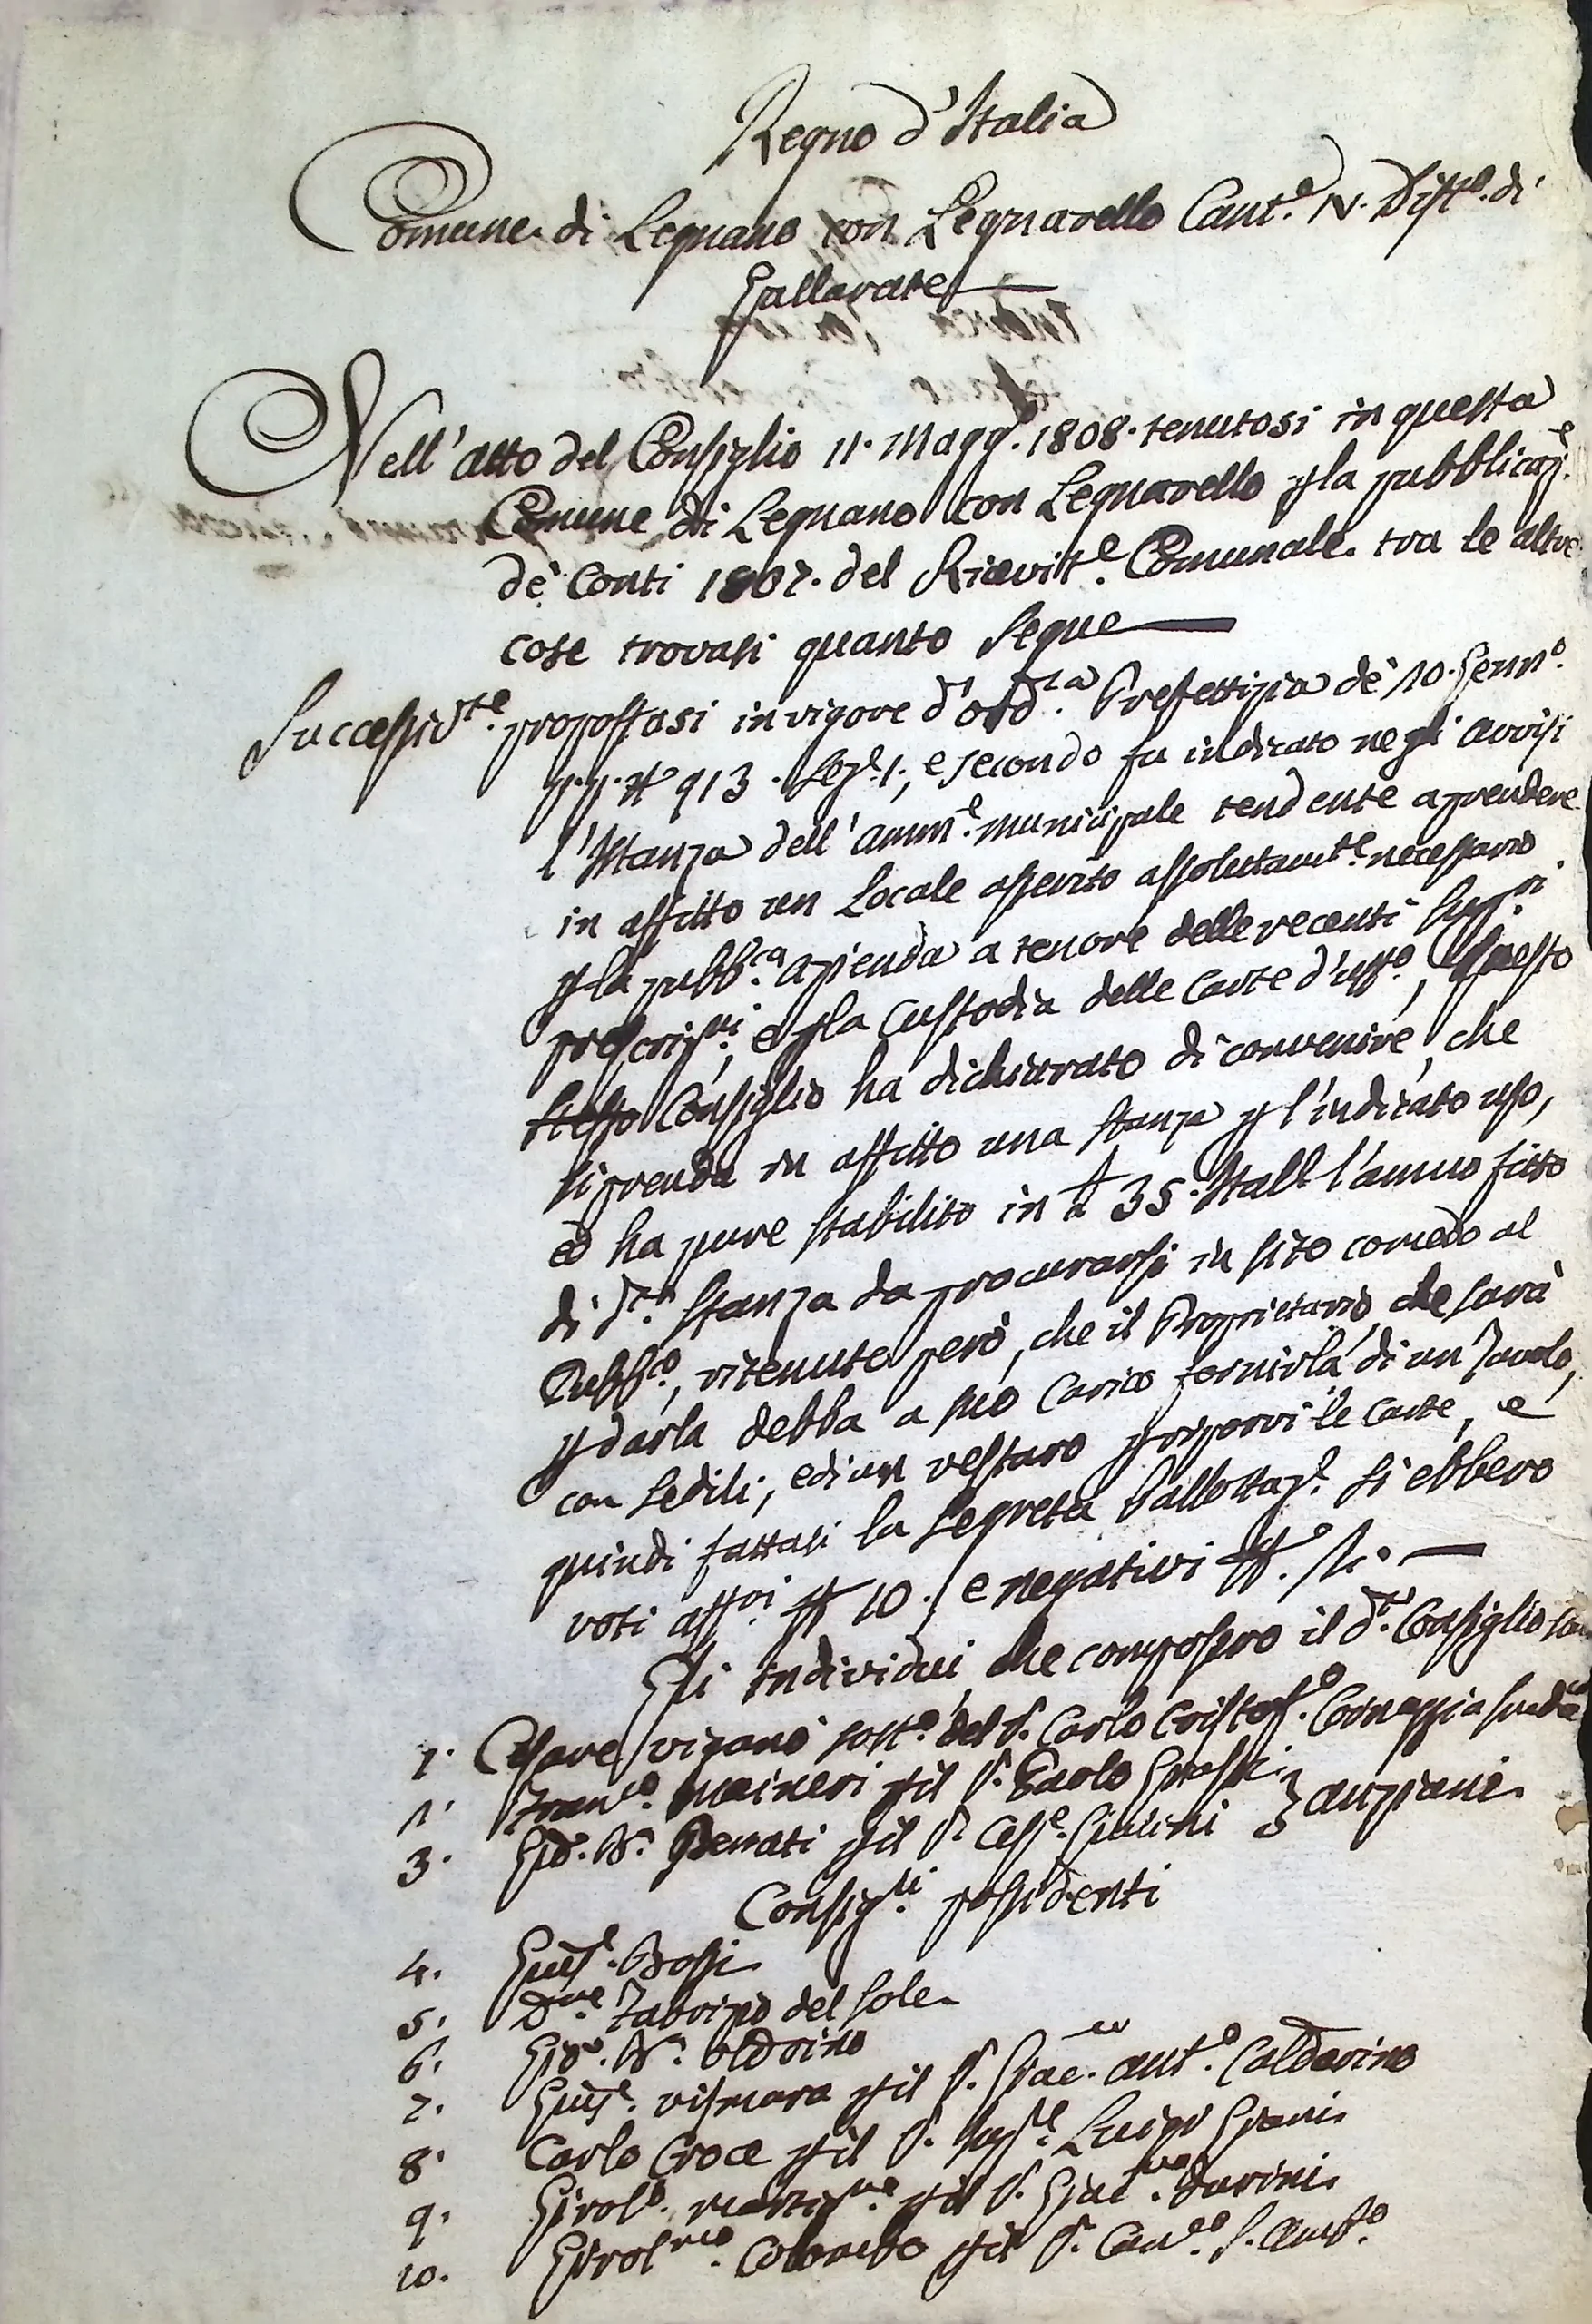 Regno d'Italia
Comune di Legnano con Legnarello Cant.e N. Distto. di
Gallarate
Nell'atto del Consiglio 11. Magg.o 1808. tenutosi in questa
Comune di Legnano con Legnarello p la pubblicaz.e
de' Conti 1807. del Ricevit.e Comunale. tra le altre
cose trovasi quanto segue
Successiv.te propostasi in vigore d'ord.za Prefettizia de' 10. Genn.o
p.p. N 913. Sez.e 1., e secondo fu indicato negli avvisi
l'Istanza dell'amm.e municipale tendente a prendere
in affitto un Locale asserito assolutam.te necessario
p la pubb.ca azienda a tenore delle recenti Sup.ri
prescriz.ni, e p la Custodia delle Carte d'uff.o, questo
stesso Consiglio ha dichiarato di convenire, che
si prenda in affitto una stanza p l'indicato uso,
ed ha pure stabilito in 35. Itall l'annuo fitto
di d.ta stanza da procurarsi in sito comodo al
Pubb.co, ritenuto però, che il Proprietario che sarà
p darla debba a suo Carico fornirla di un Tavolo,
con sedili, ed un vestaro p riporvi le Carte, e
quindi fattasi la segreta Ballottaz.e si ebbero
voti aff.vi N 10. e negativi N.o
Gli individui, che composero il d.o Consiglio
1. Cesare Viganò sost.o del S. Carlo Cristof.o Cornaggia
Fran.co Maineri p il S. Paolo
3. Gio. B.a Benati p il S. } anziani
Consig.ri possidenti
4. Gius.e Bossi
5. D.nie Tabrino del Sole
6. Gio. B.a Oldrino
7. Gius.e Vismara p il S. Giac. Ant.o Caldarino
8. Carlo Croce p il S. Luigi
9. Girol.o p il S. Giac.
10. Girol.mo Colombo p il S. Can.co S. Amb.o